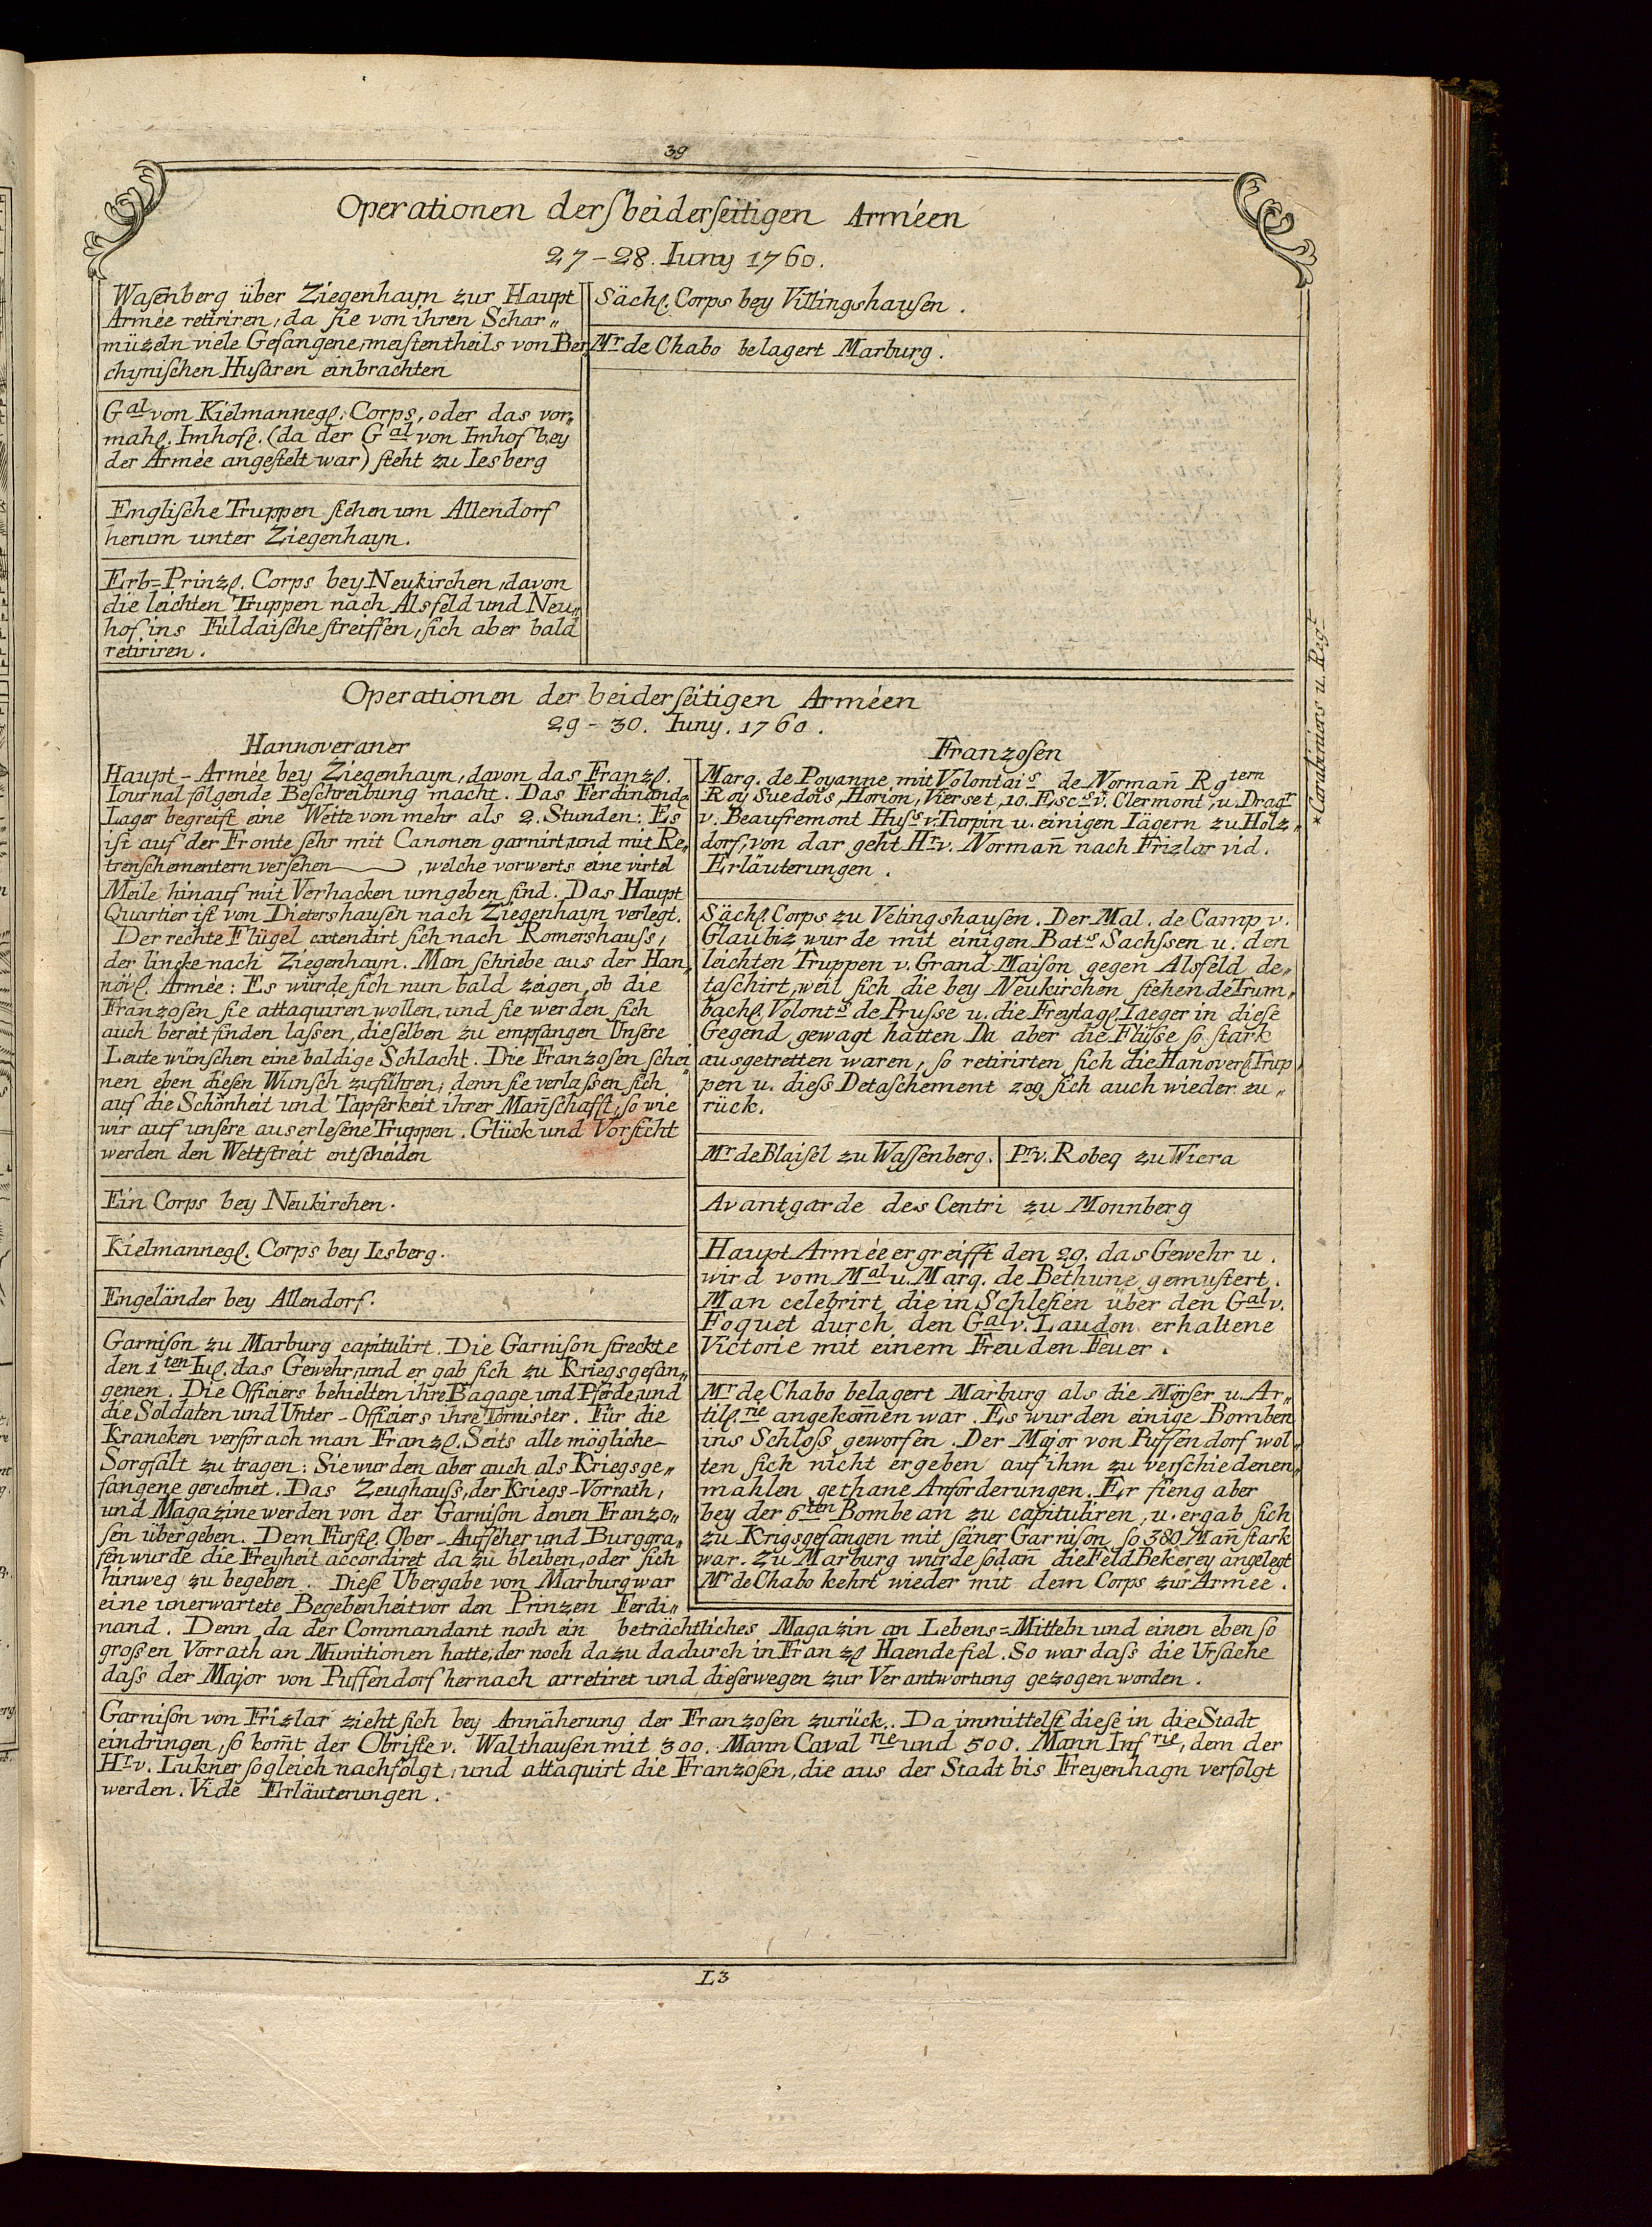 39
Operationen der beiderſeitigen Arméen
27-28. Iuny 1760.
Waſenberg über Ziegenhayn zur Haupt
Armée retiriren, da ſie von ihren Schar„
müzeln viele Gefangene, meiſtentheils von Ber„
chyniſchen Huſaren einbrachten
Gal von Kielmannegſ. Corps, oder das vor„
mahſ. Imhofſ. (da der Gal von Imhof bey
der Armée angeſtelt war) ſteht zu Iesberg
Engliſche Truppen ſtehen um Allendorf
herum unter Ziegenhayn.
Erb=Prinzſ. Corps bey Neukirchen, davon
die leichten Truppen nach Alsfeld und Neu„
hof ins Fuldaiſche ſtreiffen, ſich aber bald
retiriren.
Sächſ. Corps bey Villingshauſen.
Mr de Chabo belagert Marburg.
Operationen der beiderſeitigen Arméen
29-30. Iuny. 1760.
Hannoveraner
Haupt-Armée bey Ziegenhayn, davon das Franzſ.
Iournal folgende Beſchreibung macht. Das Ferdinandſ
Lager begreift eine Wette von mehr als 2. Stunden: Es
iſt auf der Fronte ſehr mit Canonen garnirt, und mit Re„
trenſchementern verſehen, welche vorwerts eine virtel
Meile hinauf mit Verhacken umgeben ſind. Das Haupt
Quartier iſt von Dietershauſen nach Ziegenhayn verlegt.
Der rechte Flügel extendirt ſich nach Romershauſs,
der lincke nach Ziegenhayn. Man ſchriebe aus der Han„
növſ. Armée: Es würde ſich nun bald zeigen, ob die
Franzoſen ſie attaquiren wollen, und ſie werden ſich
auch bereit finden laſſen, dieſelben zu empfangen Unſere
Leute wünſchen eine baldige Schlacht. Die Franzoſen ſchei„
nen eben dieſen Wunſch zuführen, denn ſie verlaſſen ſich
auf die Schönheit und Tapferkeit ihrer Mañſchafft, ſo wie
wir auf unſere auserleſene Truppen. Glück und Vorſicht
werden den Wettſtreit entſcheiden
Ein Corps bey Neukirchen.
Kielmannegſ. Corps bey Iesberg.
Engeländer bey Allendorf.
Garniſon zu Marburg capitulirt. Die Garniſon ſtreckte
den 1ten Iuſ. das Gewehr, und er gab ſich zu Kriegsgefan„
genen. Die Officiers behielten ihre Bagage und Pferde, und
die Soldaten und Unter-Officiers ihre Tornister. Für die
Krancken verſprach man Franzſ. Seits alle mögliche
Sorgfalt zu tragen: Sie wurden aber auch als Kriegsge„
fangene gerechnet. Das Zeughauſs, der Kriegs-Vorrath,
und Magazine werden von der Garniſon denen Franzo„
ſen übergeben. Dem Fürſtſ. Ober-Aufſeher und Burggra„
fen wurde die Freyheit accordiret da zu bleiben, oder ſich
hinweg zu begeben. Dieſe Ubergabe von Marburg war
eine unerwartete Begebenheit vor den Prinzen Ferdi„
nand. Denn da der Commandant noch ein beträchtliches Magazin an Lebens=Mitteln und einen eben ſo
groſsen Vorrath an Munitionen hatte, der noch dazu dadurch in Franzſ Haende fiel. So war daſs die Urſache
daſs der Major von Puffendorf hernach arretiret und dieſerwegen zur Verantwortung gezogen worden.
Franzoſen
Marq. de Poyanne mit Volontais de Normañ Rgtern
Roy Suedois, Horion, Vierset, 10. Escs v. Clermont, u. Dragr
v. Beaufremont Huſs v. Turpin u. einigen Iägern zu Holz„
dorf, von dar geht Hr v. Normañ nach Frizlar vid.
Erläuterungen.
Sächſ. Corps zu Velingshauſen. Der Mal. de Camp v.
Glaubiz wurde mit einigen Bats Sachſsen u. den
leichten Truppen v. Grand-Maiſon gegen Alsfeld de„
taſchirt, weil ſich die bey Neukirchen ſtehende Trum„
bachſ. Volonts de Pruſſe u. die Freytagſ. Iaeger in dieſe
Gegend gewagt hatten Da aber die Flüſſe ſo ſtark
ausgetretten waren, ſo retirirten ſich die Hanoverſ. Trup„
pen u. dieſs Detaſchement zog ſich auch wieder zu„
rück.
Mr de Blaiſel zu Waſſenberg.
Pr v. Robeq zu Wiera
Avantgarde des Centri zu Monnberg
Haupt Armée ergreifft den 29. das Gewehr u.
wird vom Mal u. Marq. de Bethune gemuſtert.
Man celebrirt die in Schleſien über den Gal v.
Foquet durch den Gal v. Laudon erhaltene
Victorie mit einem Freuden Feuer.
Mr de Chabo belagert Marburg als die Mörſer u. Ar„
tilſ.rie angekom̃en war. Es wurden einige Bomben
ins Schloſs geworfen. Der Major von Puffendorf wol„
ten ſich nicht ergeben auf ihm zu verſchiedenen„
mahlen gethane Anforderungen. Er fieng aber
bey der 6ten Bombe an zu capituliren, u. ergab ſich
zu Krigsgefangen mit ſeiner Garniſon, ſo 380 Mañ ſtark
war. Zu Marburg wurde ſodañ die Feld Bekerey angelegt
Mr de Chabo kehrt wieder mit dem Corps zur Armée.
Garniſon von Frizlar zieht ſich bey Annäherung der Franzoſen zurück. Da immittelſt dieſe in die Stadt
eindringen, ſo kom̃t der Obriſte v. Walthauſen mit 300. Mann Cavalrie und 500. Mann Infrie, dem der
Hr v. Lukner ſogleich nachfolgt, und attaquirt die Franzoſen, die aus der Stadt bis Freyenhagn verfolgt
werden. Vide Erläuterungen.
*Carabiniers u. Regt
L3